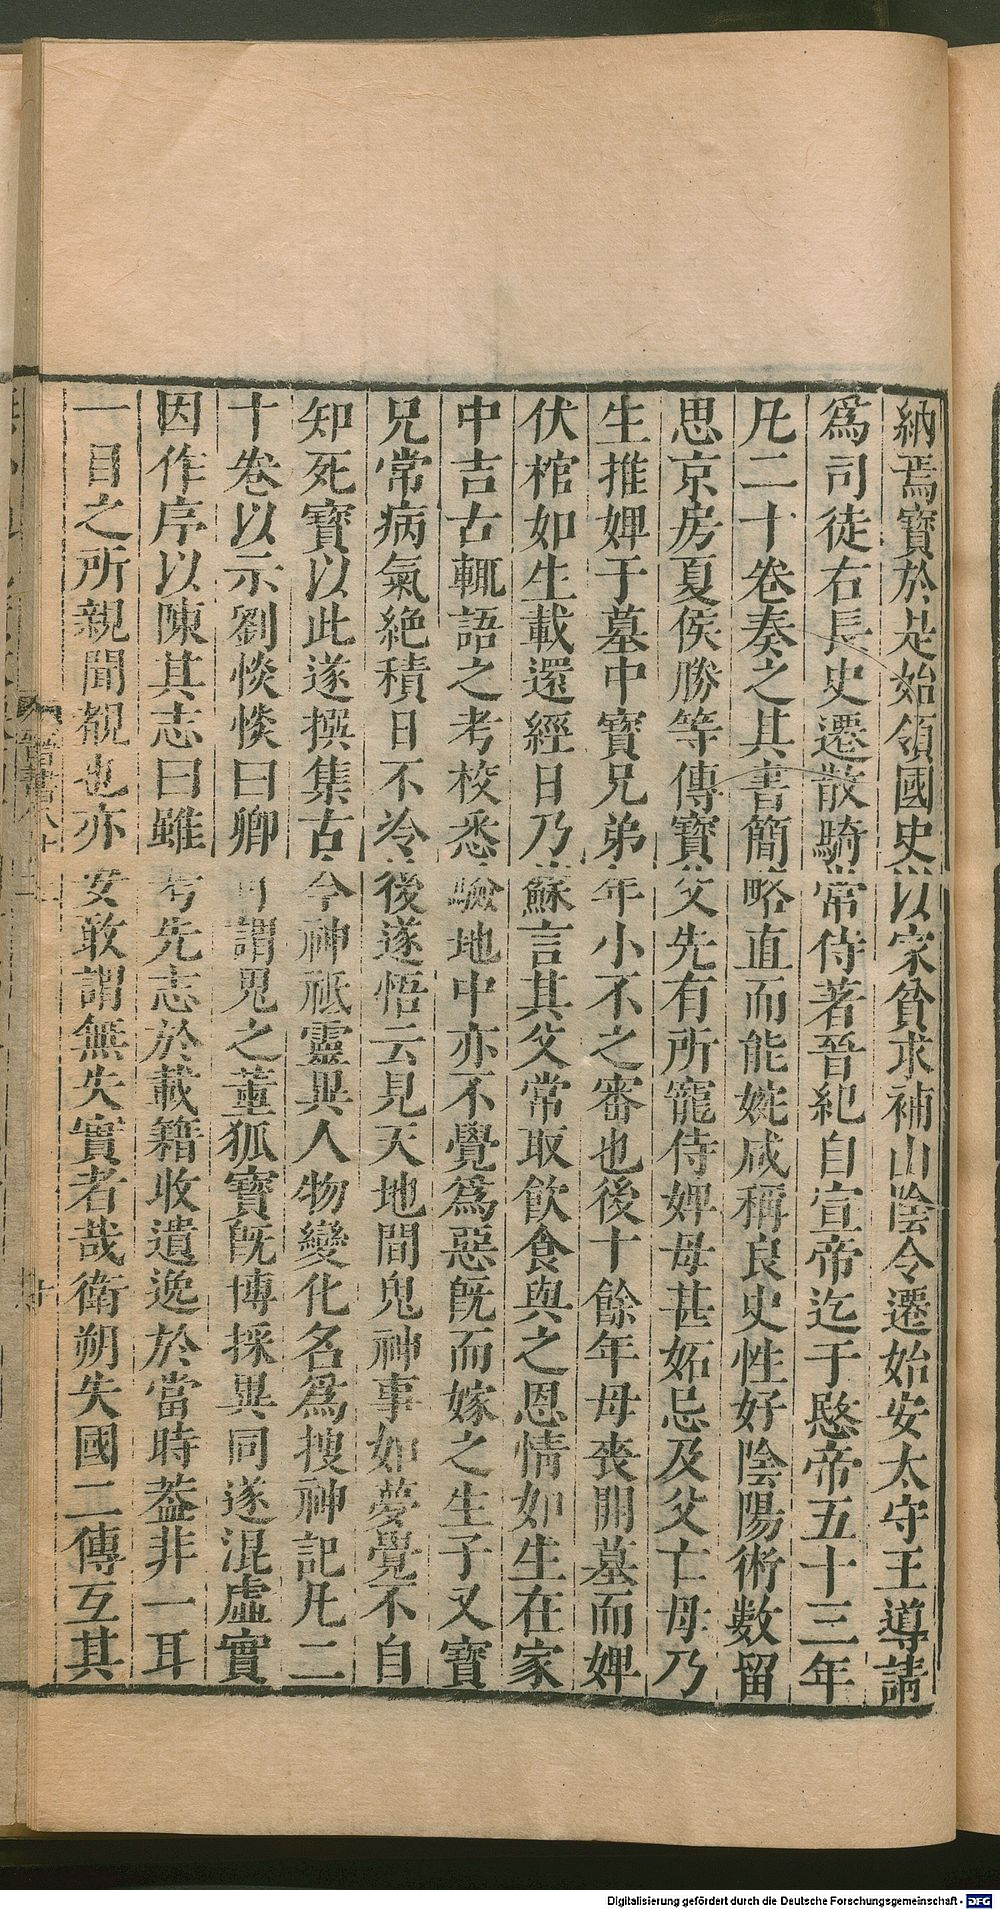 納焉寶於是始領國史以家貧求補山陰令遷始安太守王導請
爲司徒右長史遷散騎常侍著晉紀自宣帝迄于愍帝五十三年
凡二十卷奏之其書簡略直而能婉咸稱良史性好陰陽術數留
思京房夏侯勝等傳寶父先有所寵侍婢母甚妬忌及父亡母乃
生推婢于墓中寶兄弟年小不之審也後十餘年母喪開墓而婢
伏棺如生載還經日乃蘇言其父常取飲食與之恩情如生在家
中吉古輒語之考校悉驗地中亦不覺爲惡旣而嫁之生子又寶
兄常病氣絶積日不冷後遂悟云見天地間鬼神事如夢覺不自
知死寶以此遂撰集古今神祇靈異人物變化名爲搜神記凡二
十卷以示劉惔惔曰卿可謂鬼之董狐寶旣博採異同遂混虛實
因作序以陳其志曰雖考先志於載籍收遺逸於當時葢非一耳
一目之所親聞覩也亦安敢謂無失實者哉衛朔失國二傳互其
晉書八十二
十
Digitalisierung gefördert durch die Deutsche Forschungsgemeinschaft - DFG